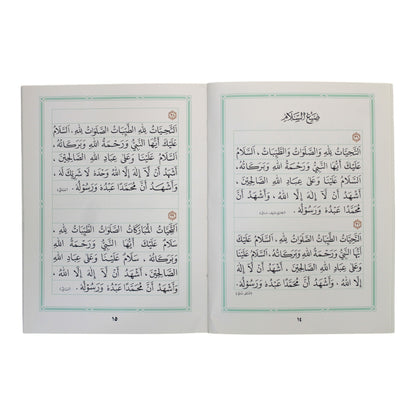 صيغ السلام
التَّحِيَّاتُ لِلَّهِ وَالصَّلَوَاتُ وَالطَّيِّبَاتُ ، السَّلَامُ
عَلَيْكَ أَيُّهَا النَّبِيُّ وَرَحْمَةُ اللهِ وَبَرَكَاتُهُ ،
السَّلَامُ عَلَيْنَا وَعَلَى عِبَادِ اللهِ الصَّالِحِينَ ،
أَشْهَدُ أَنْ لَا إِلَهَ إِلَّا اللهُ ، وَأَشْهَدُ أَنَّ
مُحَمَّدًا عَبْدُهُ وَرَسُولُهُ .
التَّحِيَّاتُ الطَّيِّبَاتُ الصَّلَوَاتُ لِلَّهِ ، السَّلَامُ عَلَيْكَ
أَيُّهَا النَّبِيُّ وَرَحْمَةُ اللهِ وَبَرَكَاتُهُ ، السَّلَامُ عَلَيْنَا
وَعَلَى عِبَادِ اللهِ الصَّالِحِينَ ، أَشْهَدُ أَنْ لَا إِلَهَ
إِلَّا اللهُ ، وَأَشْهَدُ أَنَّ مُحَمَّدًا عَبْدُهُ وَرَسُولُهُ .
١٤
التَّحِيَّاتُ لِلَّهِ الطَّيِّبَاتُ الصَّلَوَاتُ لِلَّهِ ، السَّلَامُ
عَلَيْكَ أَيُّهَا النَّبِيُّ وَرَحْمَةُ اللهِ وَبَرَكَاتُهُ ،
السَّلَامُ عَلَيْنَا وَعَلَى عِبَادِ اللهِ الصَّالِحِينَ ،
أَشْهَدُ أَنْ لَا إِلَهَ إِلَّا اللهُ وَحْدَهُ لَا شَرِيكَ لَهُ ،
وَأَشْهَدُ أَنَّ مُحَمَّدًا عَبْدُهُ وَرَسُولُهُ .
التَّحِيَّاتُ الْمُبَارَكَاتُ الصَّلَوَاتُ الطَّيِّبَاتُ لِلَّهِ ،
سَلَامٌ عَلَيْكَ أَيُّهَا النَّبِيُّ وَرَحْمَةُ اللهِ
وَبَرَكَاتُهُ ، سَلَامٌ عَلَيْنَا وَعَلَى عِبَادِ اللهِ
الصَّالِحِينَ ، أَشْهَدُ أَنْ لَا إِلَهَ إِلَّا اللهُ ،
وَأَشْهَدُ أَنَّ مُحَمَّدًا عَبْدُهُ وَرَسُولُهُ .
١٥